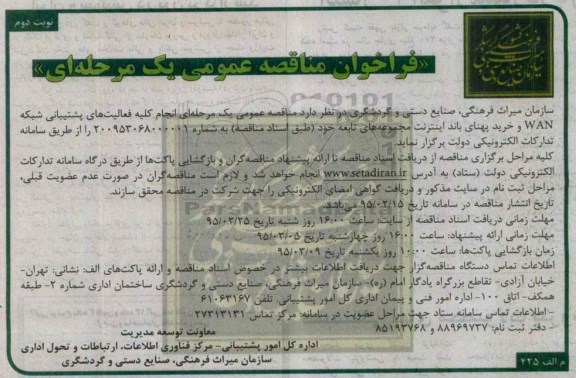 نوبت دوم
«فراخوان مناقصه عمومی یک مرحله‌ای»
سازمان میراث فرهنگی، صنایع دستی و گردشگری در نظر دارد مناقصه عمومی یک مرحله‌ای انجام کلیه فعالیت‌های پشتیبانی شبکه
WAN و خرید پهنای باند اینترنت مجموعه‌های تابعه خود (طبق اسناد مناقصه) به شماره ۲۰۰۹۵۳۰۶۸۰۰۰۰۰۱ را از طریق سامانه
تدارکات الکترونیکی دولت برگزار نماید.
کلیه مراحل برگزاری مناقصه از دریافت اسناد مناقصه تا ارائه پیشنهاد مناقصه‌گران و بازگشایی پاکت‌ها از طریق درگاه سامانه تدارکات
الکترونیکی دولت (ستاد) به آدرس www.setadiran.ir انجام خواهد شد و لازم است مناقصه‌گران در صورت عدم عضویت قبلی،
مراحل ثبت نام در سایت مذکور و دریافت گواهی امضای الکترونیکی را جهت شرکت در مناقصه محقق سازند.
تاریخ انتشار مناقصه در سامانه تاریخ ۹۵/۰۲/۱۵ می‌باشد.
مهلت زمانی دریافت اسناد مناقصه از سایت: ساعت ۱۶:۰۰ روز شنبه تاریخ ۹۵/۰۲/۲۵
مهلت زمانی ارائه پیشنهاد: ساعت ۱۶:۰۰ روز چهارشنبه تاریخ ۹۵/۰۳/۰۵
زمان بازگشایی پاکت‌ها: ساعت ۱۰:۰۰ روز یکشنبه تاریخ ۹۵/۰۳/۰۹
اطلاعات تماس دستگاه مناقصه‌گزار جهت دریافت اطلاعات بیشتر در خصوص اسناد مناقصه و ارائه پاکت‌های الف: نشانی: تهران-
خیابان آزادی- تقاطع بزرگراه یادگار امام (ره)- سازمان میراث فرهنگی، صنایع دستی و گردشگری ساختمان اداری شماره ۲- طبقه
همکف- اتاق ۱۰۰- اداره امور فنی و پیمان اداری کل امور پشتیبانی. تلفن ۶۱۰۶۳۱۶۷
- اطلاعات تماس سامانه ستاد جهت مراحل عضویت در سامانه: مرکز تماس ۲۷۳۱۳۱۳۱
- دفتر ثبت نام: ۸۸۹۶۹۷۳۷ و ۸۵۱۹۳۷۶۸
معاونت توسعه مدیریت
اداره کل امور پشتیبانی- مرکز فناوری اطلاعات، ارتباطات و تحول اداری
سازمان میراث فرهنگی، صنایع دستی و گردشگری
م الف ۴۲۵